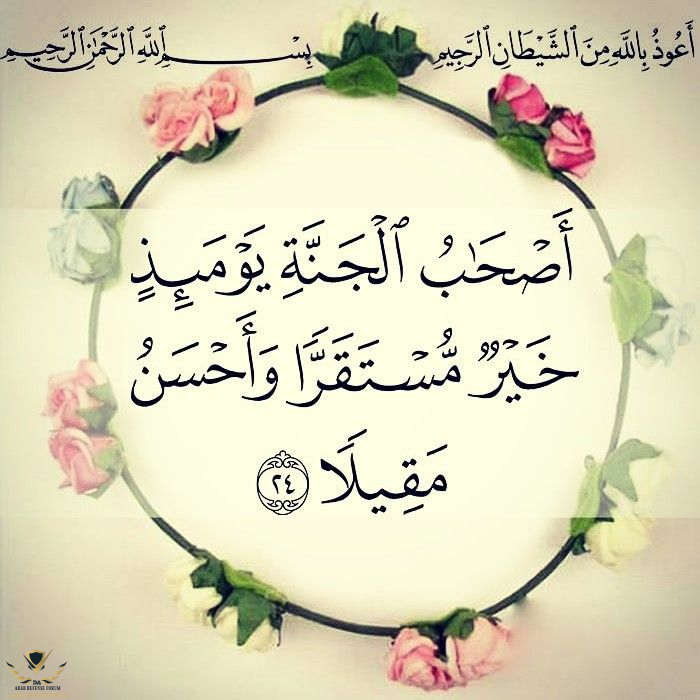 أَعُوذُ بِاللَّهِ مِنَ ٱلشَّيْطَانِ ٱلرَّجِيمِ بِسْمِ ٱللَّهِ ٱلرَّحْمَٰنِ ٱلرَّحِيمِ
أَصْحَٰبُ ٱلْجَنَّةِ يَوْمَئِذٍ
خَيْرٌ مُّسْتَقَرًّا وَأَحْسَنُ
مَقِيلًا ٢٤
DA
ARAB DEFENSE FORUM